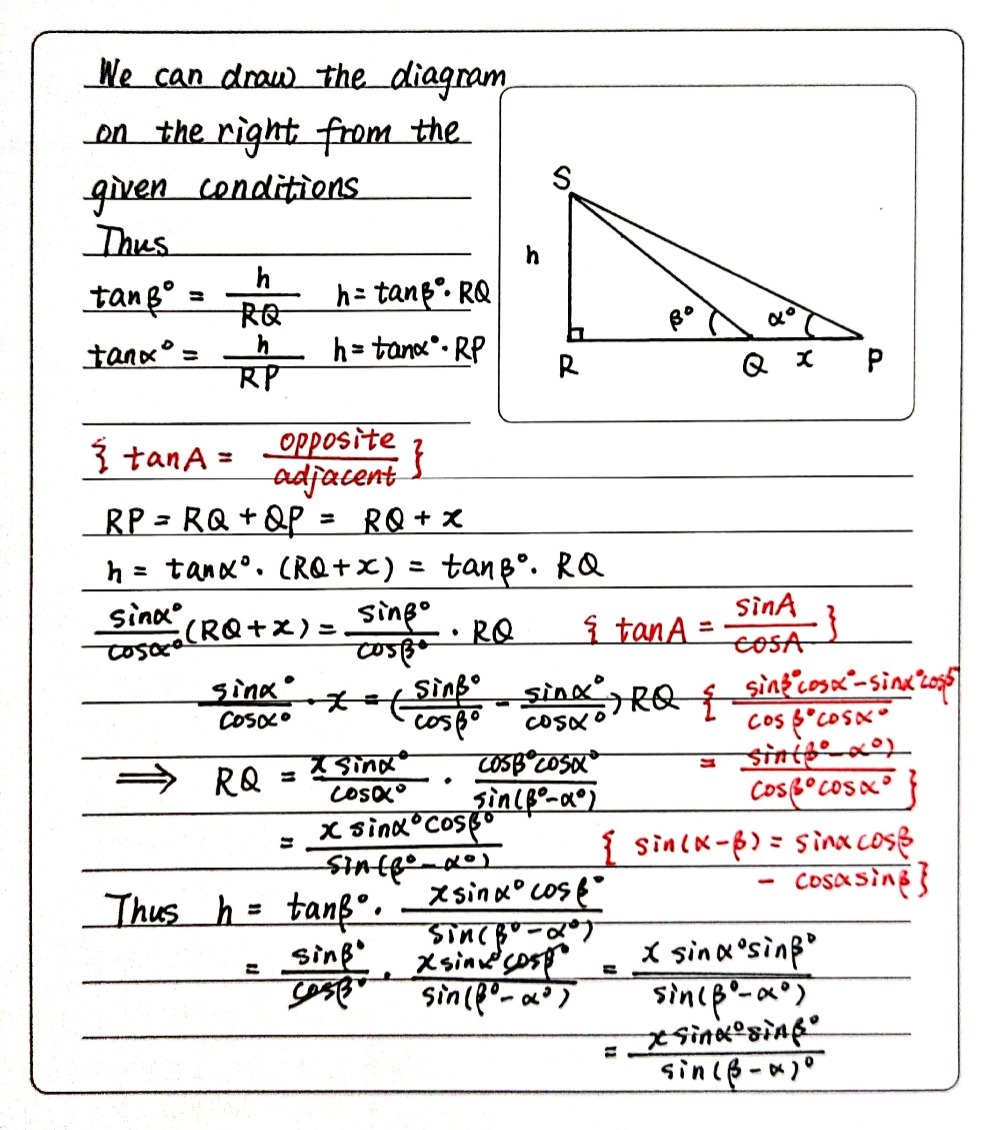 We can draw the diagram
on the right from the
given conditions
Thus
tanβ° = h/RQ h = tanβ°· RQ
tanα° = h/RP h = tanα°· RP
S
h
β° α°
R Q x P
{ tanA = opposite/adjacent }
RP = RQ + QP = RQ + x
h = tanα°. (RQ+x) = tanβ°. RQ
sinα°/cosα° (RQ+x) = sinβ°/cosβ° · RQ { tanA = sinA/cosA }
sinα°/cosα° · x = (sinβ°/cosβ° - sinα°/cosα°) RQ { sinβ°cosα°-sinα°cosβ°/cosβ°cosα°
⟹ RQ = x sinα°/cosα° · cosβ°cosα°/sin(β°-α°) = sin(β°-α°)/cosβ°cosα° }
= x sinα°cosβ°/sin(β°-α°) { sin(α-β) = sinαcosβ
- cosαsinβ }
Thus h = tanβ°. x sinα°cosβ°/sin(β°-α°)
= sinβ°/cosβ° · x sinα°cosβ°/sin(β°-α°) = x sinα°sinβ°/sin(β°-α°)
= x sinα°sinβ°/sin(β-α)°